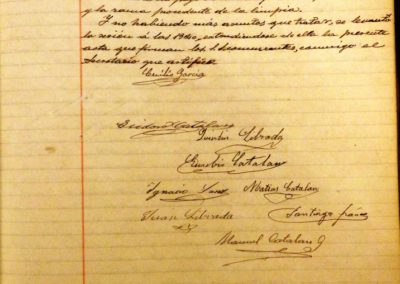 y la rama procedente de la limpia.
Y no habiendo más asuntos que tratar, se levantó
la sesión á las 19'40, extendiéndose de ella la presente
acta que firman los S. S. concurrentes, conmigo el
Secretario que certifico
Emilio García
Isidoro Catalan
Quintin Librada
Eusebio Catalan
Ignacio Mateos Catalan
Juan Librada Santiago
Manuel Catalan G